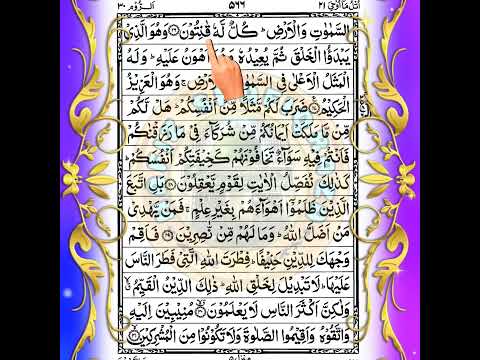 اُتْلُ مَاۤ اُوْحِیَ ۲۱ ۵۶۶ اَلرُّوْم ۳۰
السَّمٰوٰتِ وَالْاَرْضِ ؕ كُلٌّ لَّهٗ قٰنِتُوْنَ ﴿۲۶﴾ وَهُوَ الَّذِیْ
یَبْدَؤُا الْخَلْقَ ثُمَّ یُعِیْدُهٗ وَهُوَ اَهْوَنُ عَلَیْهِ ؕ وَلَهُ
الْمَثَلُ الْاَعْلٰی فِی السَّمٰوٰتِ وَالْاَرْضِ ۚ وَهُوَ الْعَزِیْزُ
الْحَكِیْمُ ﴿۲۷﴾ ضَرَبَ لَكُمْ مَّثَلًا مِّنْ اَنْفُسِكُمْ ؕ هَلْ لَّكُمْ
مِّنْ مَّا مَلَكَتْ اَیْمَانُكُمْ مِّنْ شُرَكَآءَ فِیْ مَا رَزَقْنٰكُمْ
فَاَنْتُمْ فِیْهِ سَوَآءٌ تَخَافُوْنَهُمْ كَخِیْفَتِكُمْ اَنْفُسَكُمْ ؕ
كَذٰلِكَ نُفَصِّلُ الْاٰیٰتِ لِقَوْمٍ یَّعْقِلُوْنَ ﴿۲۸﴾ بَلِ اتَّبَعَ
الَّذِیْنَ ظَلَمُوْۤا اَهْوَآءَهُمْ بِغَیْرِ عِلْمٍ ۚ فَمَنْ یَّهْدِیْ
مَنْ اَضَلَّ اللّٰهُ ؕ وَمَا لَهُمْ مِّنْ نّٰصِرِیْنَ ﴿۲۹﴾ فَاَقِمْ
وَجْهَكَ لِلدِّیْنِ حَنِیْفًا ؕ فِطْرَتَ اللّٰهِ الَّتِیْ فَطَرَ النَّاسَ
عَلَیْهَا ؕ لَا تَبْدِیْلَ لِخَلْقِ اللّٰهِ ؕ ذٰلِكَ الدِّیْنُ الْقَیِّمُ ۙ
وَلٰكِنَّ اَكْثَرَ النَّاسِ لَا یَعْلَمُوْنَ ﴿۳۰﴾ مُنِیْبِیْنَ اِلَیْهِ
وَاتَّقُوْهُ وَاَقِیْمُوا الصَّلٰوةَ وَلَا تَكُوْنُوْا مِنَ الْمُشْرِكِیْنَ ﴿۳۱﴾